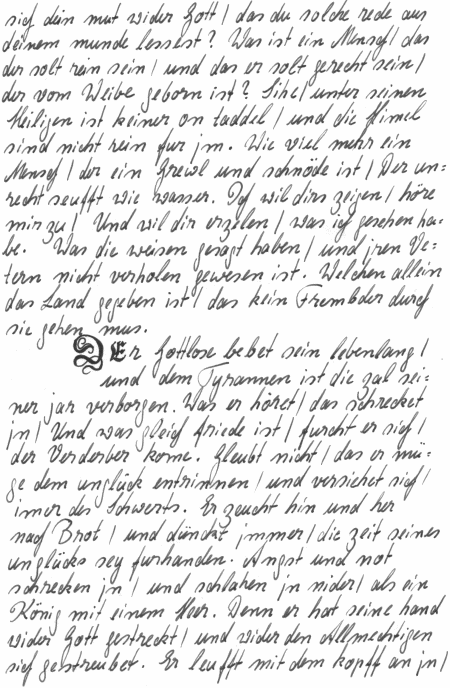 sich dein mut wider Gott / das du solche rede aus
deinem munde lessest? Was ist ein Mensch / das
der solt rein sein / und das er solt gerecht sein /
der vom Weibe geborn ist? Sihe / unter seinen
Heiligen ist keiner on taddel / und die Himel
sind nicht rein fur jm. Wie viel mehr ein
Mensch / der ein Grewl und schnöde ist / Der un=
recht seufft wie wasser. Ich wil dirs zeigen / höre
mir zu / Und wil dir erzelen / was ich gesehen ha=
be. Was die weisen gesagt haben / und jren Ve=
tern nicht verholen gewesen ist. Welchen allein
das Land gegeben ist / das kein Frembder durch
sie gehen mus.
DEr Gottlose bebet sein lebenlang /
und dem Tyrannen ist die zal sei=
ner jar verborgen. Was er höret / das schrecket
jn / Und was gleich friede ist / furcht er sich /
der Verderber kome. Gleubt nicht / das er mü=
ge dem unglück entrinnen / und versichet sich /
imer des Schwerts. Er zeucht hin und her
nach Brot / und dünckt jmmer / die zeit seines
unglücks sey furhanden. Angst und not
schrecken jn / und schlahen jn nider / als ein
König mit einem Heer. Denn er hat seine hand
wider Gott gestreckt / und wider den Allmechtigen
sich gestreubet. Er leufft mit dem kopff an jn /